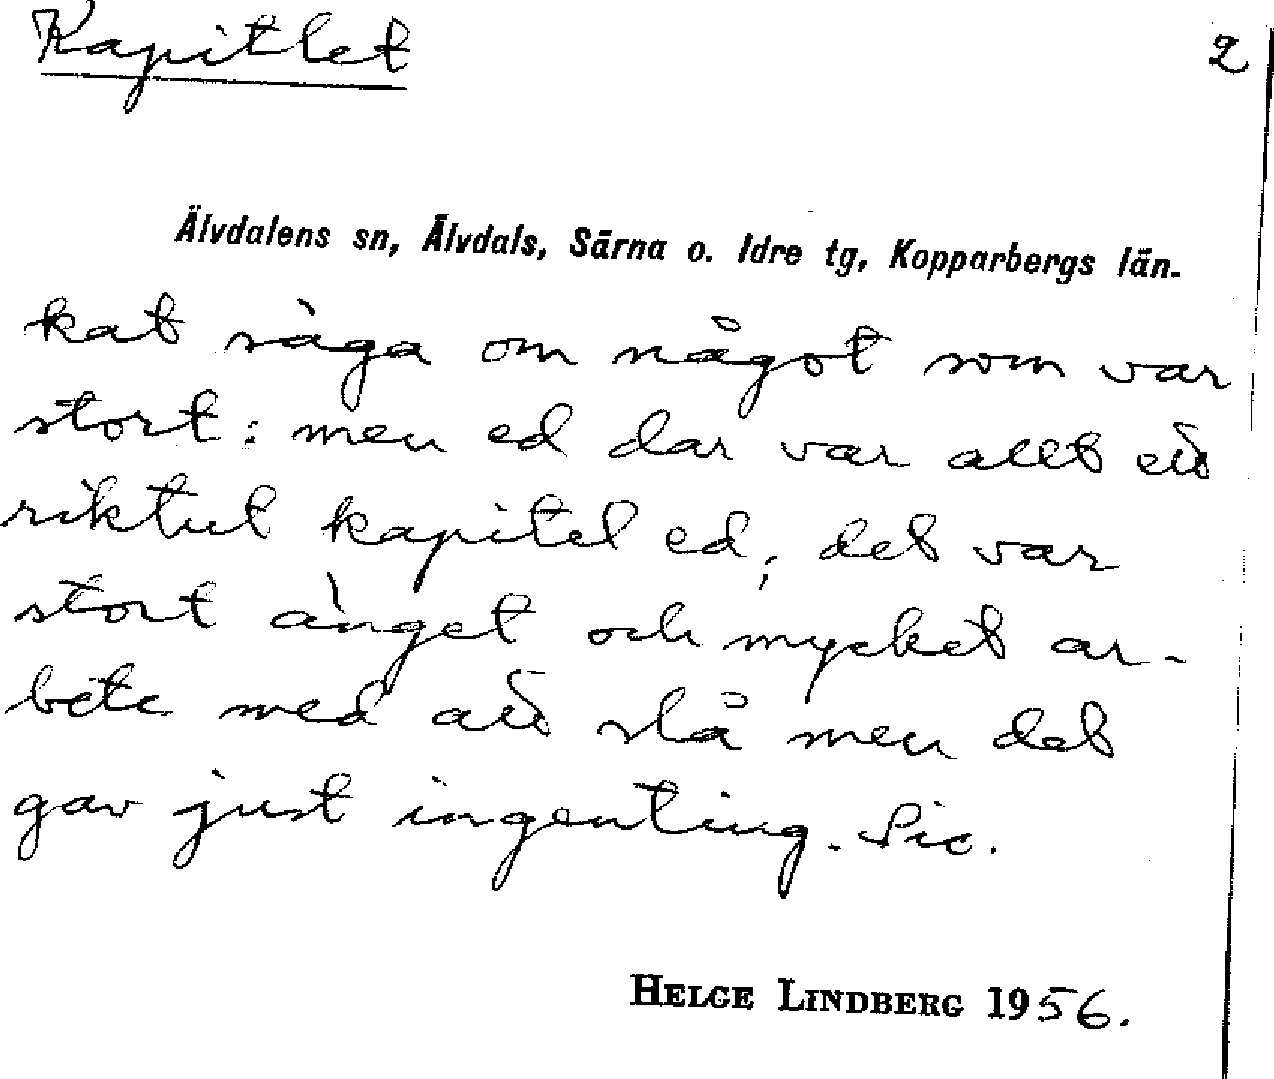 Kapitlet 2
Älvdalens sn, Älvdals, Särna o. Idre tg, Kopparbergs län.
kat säga om något som var
stort: men ed dar var allt ett
riktut kapitel ed; det var
stort änget och mycket ar-
bete med att slå men det
gav just ingenting. Sic.
HELGE LINDBERG 1956.